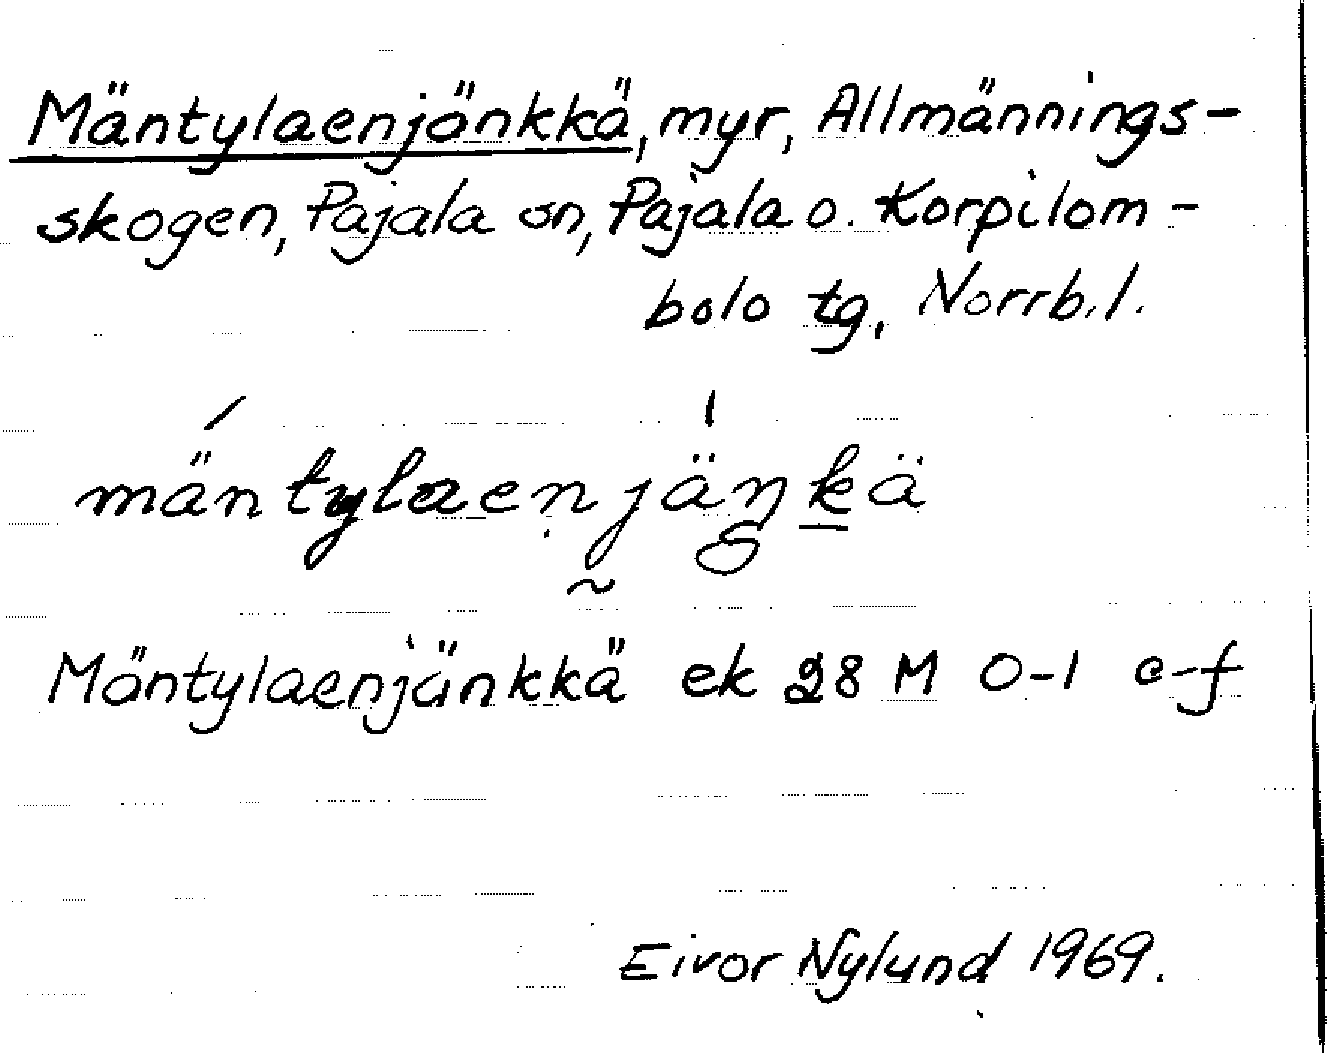 Mäntylaenjänkkä, myr, Allmännings-
skogen, Pajala sn, Pajala o. Korpilom-
bolo tg, Norrb.l.
mäntylaenjäŋkä
Mäntylaenjänkkä ek 28 M 0-1 e-f
Eivor Nylund 1969.